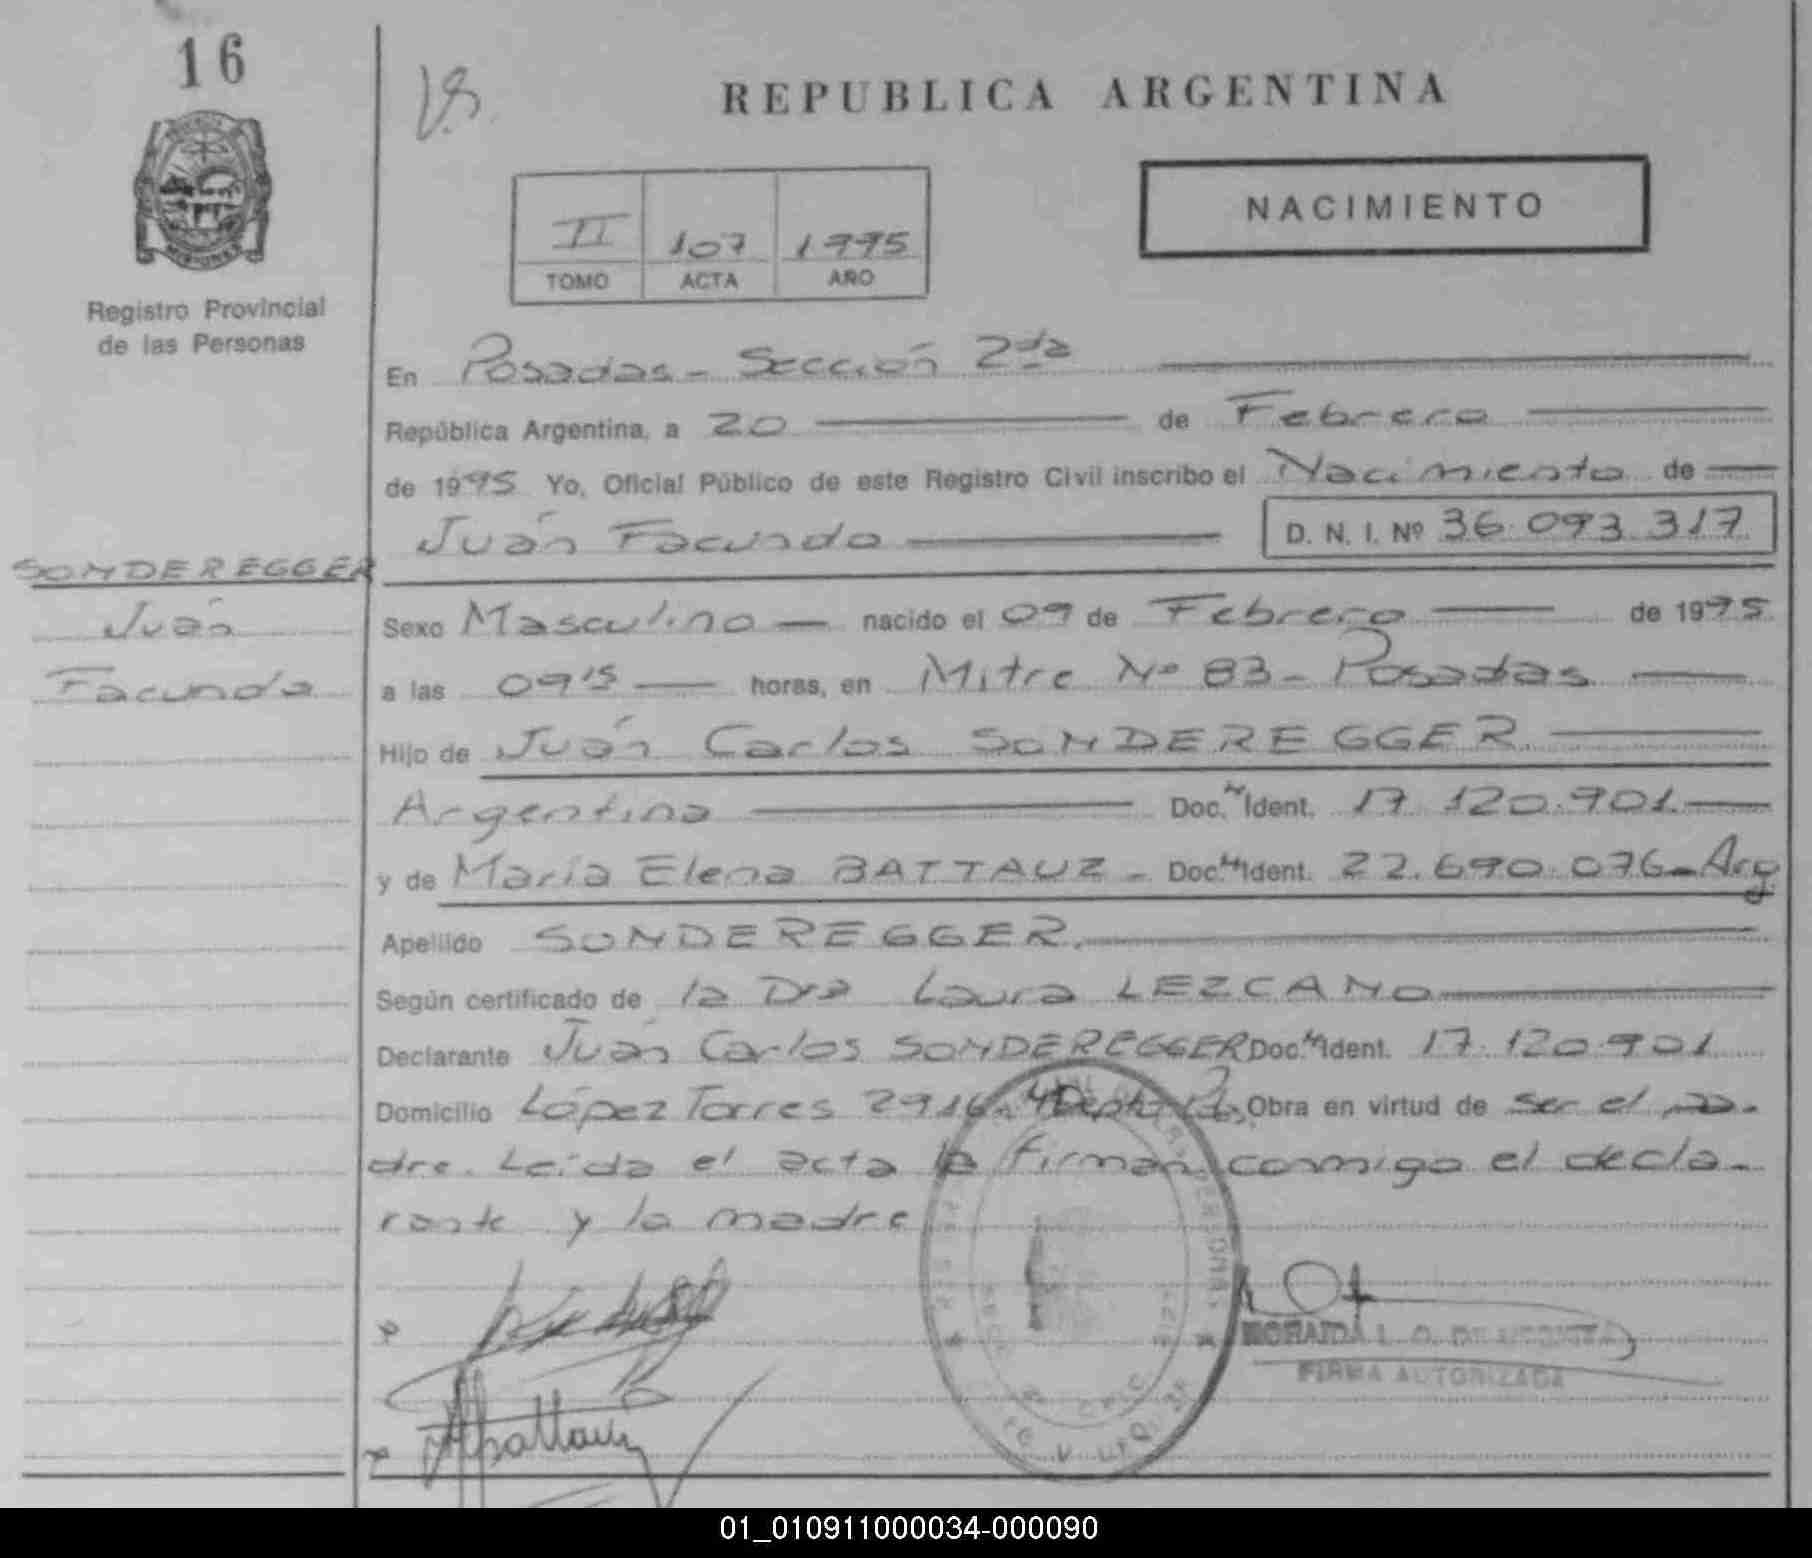 16
REPUBLICA ARGENTINA
NACIMIENTO
II 107 1995
TOMO ACTA AÑO
Registro Provincial
de las Personas
En Posadas - Sección 2da
República Argentina, a 20 de Febrero
de 1995 Yo, Oficial Público de este Registro Civil inscribo el Nacimiento de
Juán Facundo D. N. I. Nº 36.093.317
SONDEREGGER
Juán
Facundo
Sexo Masculino nacido el 09 de Febrero de 1995
a las 09'15 horas, en Mitre Nº 83 - Posadas
Hijo de Juán Carlos SONDEREGGER
Argentina Doc. Ident. 17.120.901
y de María Elena BATTAUZ - Doc. Ident. 22.690.076 - Arg
Apellido SONDEREGGER.
Según certificado de la Dra Laura LEZCANO
Declarante Juán Carlos SONDEREGGER Doc. Ident. 17.120.901
Domicilio López Torres 2916 Obra en virtud de ser el pa-
dre. Leída el acta la firman conmigo el decla-
rante y la madre
FIRMA AUTORIZADA
01_010911000034-000090